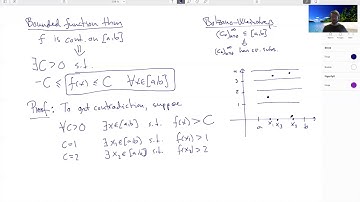 Bounded function thm
f is cont. on [a,b]
⇓
∃C>0 s.t.
-C ≤ f(x) ≤ C ∀x∈[a,b]
Proof: To get contradiction, suppose
∀C>0 ∃x∈[a,b] s.t. f(x) > C
C=1 ∃x₁∈[a,b] s.t. f(x₁) > 1
C=2 ∃x₂∈[a,b] s.t. f(x₂) > 2
Bolzano-Weierstrass
⊆ [a,b]
⇓
has
3
2
1
a x₁ x₃ x₂ b